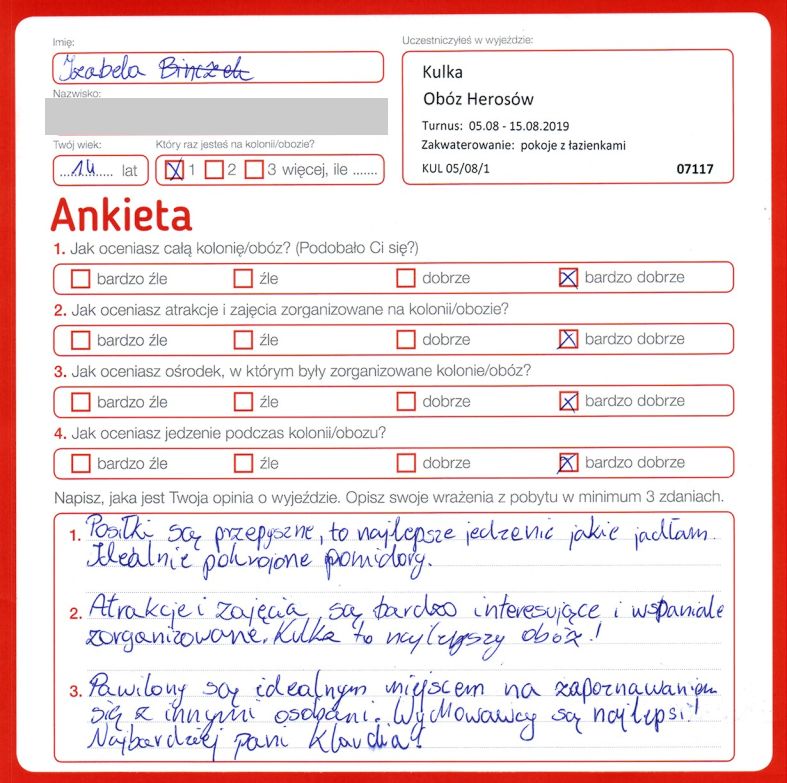 Imię:
Izabela Binczek
Nazwisko:
Twój wiek:
14 lat
Który raz jesteś na kolonii/obozie?
1 2 3 więcej, ile .......
Uczestniczyłeś w wyjeździe:
Kulka
Obóz Herosów
Turnus: 05.08 - 15.08.2019
Zakwaterowanie: pokoje z łazienkami
KUL 05/08/1 07117
Ankieta
1. Jak oceniasz całą kolonię/obóz? (Podobało Ci się?)
bardzo źle źle dobrze bardzo dobrze
2. Jak oceniasz atrakcje i zajęcia zorganizowane na kolonii/obozie?
bardzo źle źle dobrze bardzo dobrze
3. Jak oceniasz ośrodek, w którym były zorganizowane kolonie/obóz?
bardzo źle źle dobrze bardzo dobrze
4. Jak oceniasz jedzenie podczas kolonii/obozu?
bardzo źle źle dobrze bardzo dobrze
Napisz, jaka jest Twoja opinia o wyjeździe. Opisz swoje wrażenia z pobytu w minimum 3 zdaniach.
1. Posiłki są przepyszne, to najlepsze jedzenie jakie jadłam.
Idealnie pokrojone pomidory.
2. Atrakcje i zajęcia są bardzo interesujące i wspaniale
zorganizowane. Kulka to najlepszy obóz!
3. Pawilony są idealnym miejscem na zapoznawaniem
się z innymi osobami. Wychowawcy są najlepsi!
Najbardziej pani Klaudia!